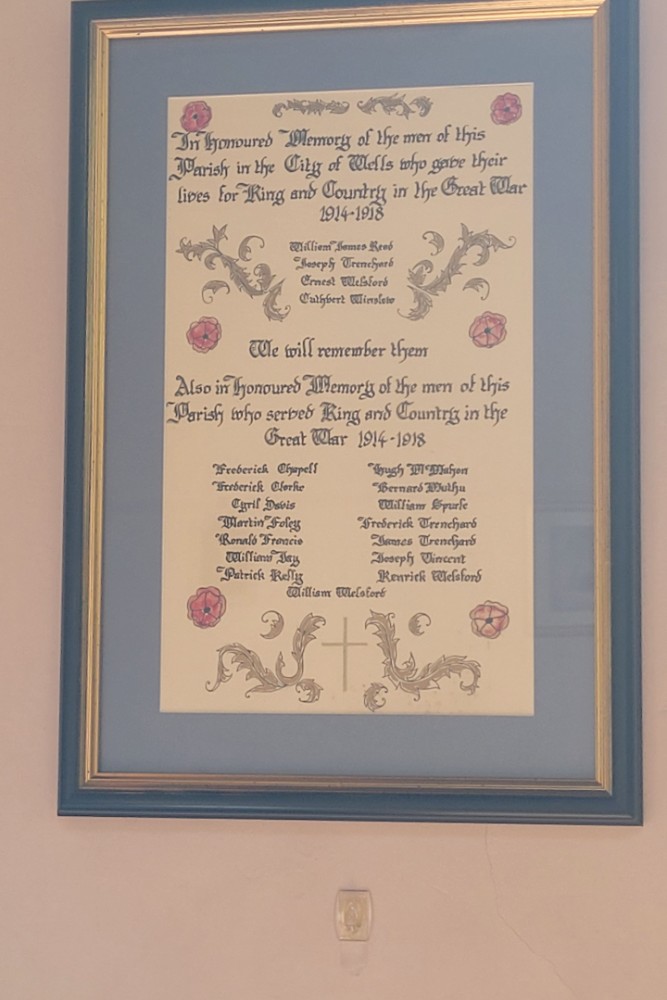 In Honoured Memory of the men of this
Parish in the City of Wells who gave their
lives for King and Country in the Great War
1914-1918
William James Reed
Joseph Trenchard
Ernest Welsford
Cuthbert Winslow
We will remember them
Also in Honoured Memory of the men of this
Parish who served King and Country in the
Great War 1914-1918
Frederick Chapell
Frederick Clarke
Cyril Davis
Martin Foley
Ronald Francis
William Jay
Patrick Kelly
Hugh McMahon
Bernard Mothu
William Spurle
Frederick Trenchard
James Trenchard
Joseph Vincent
Kenrick Welsford
William Welsford